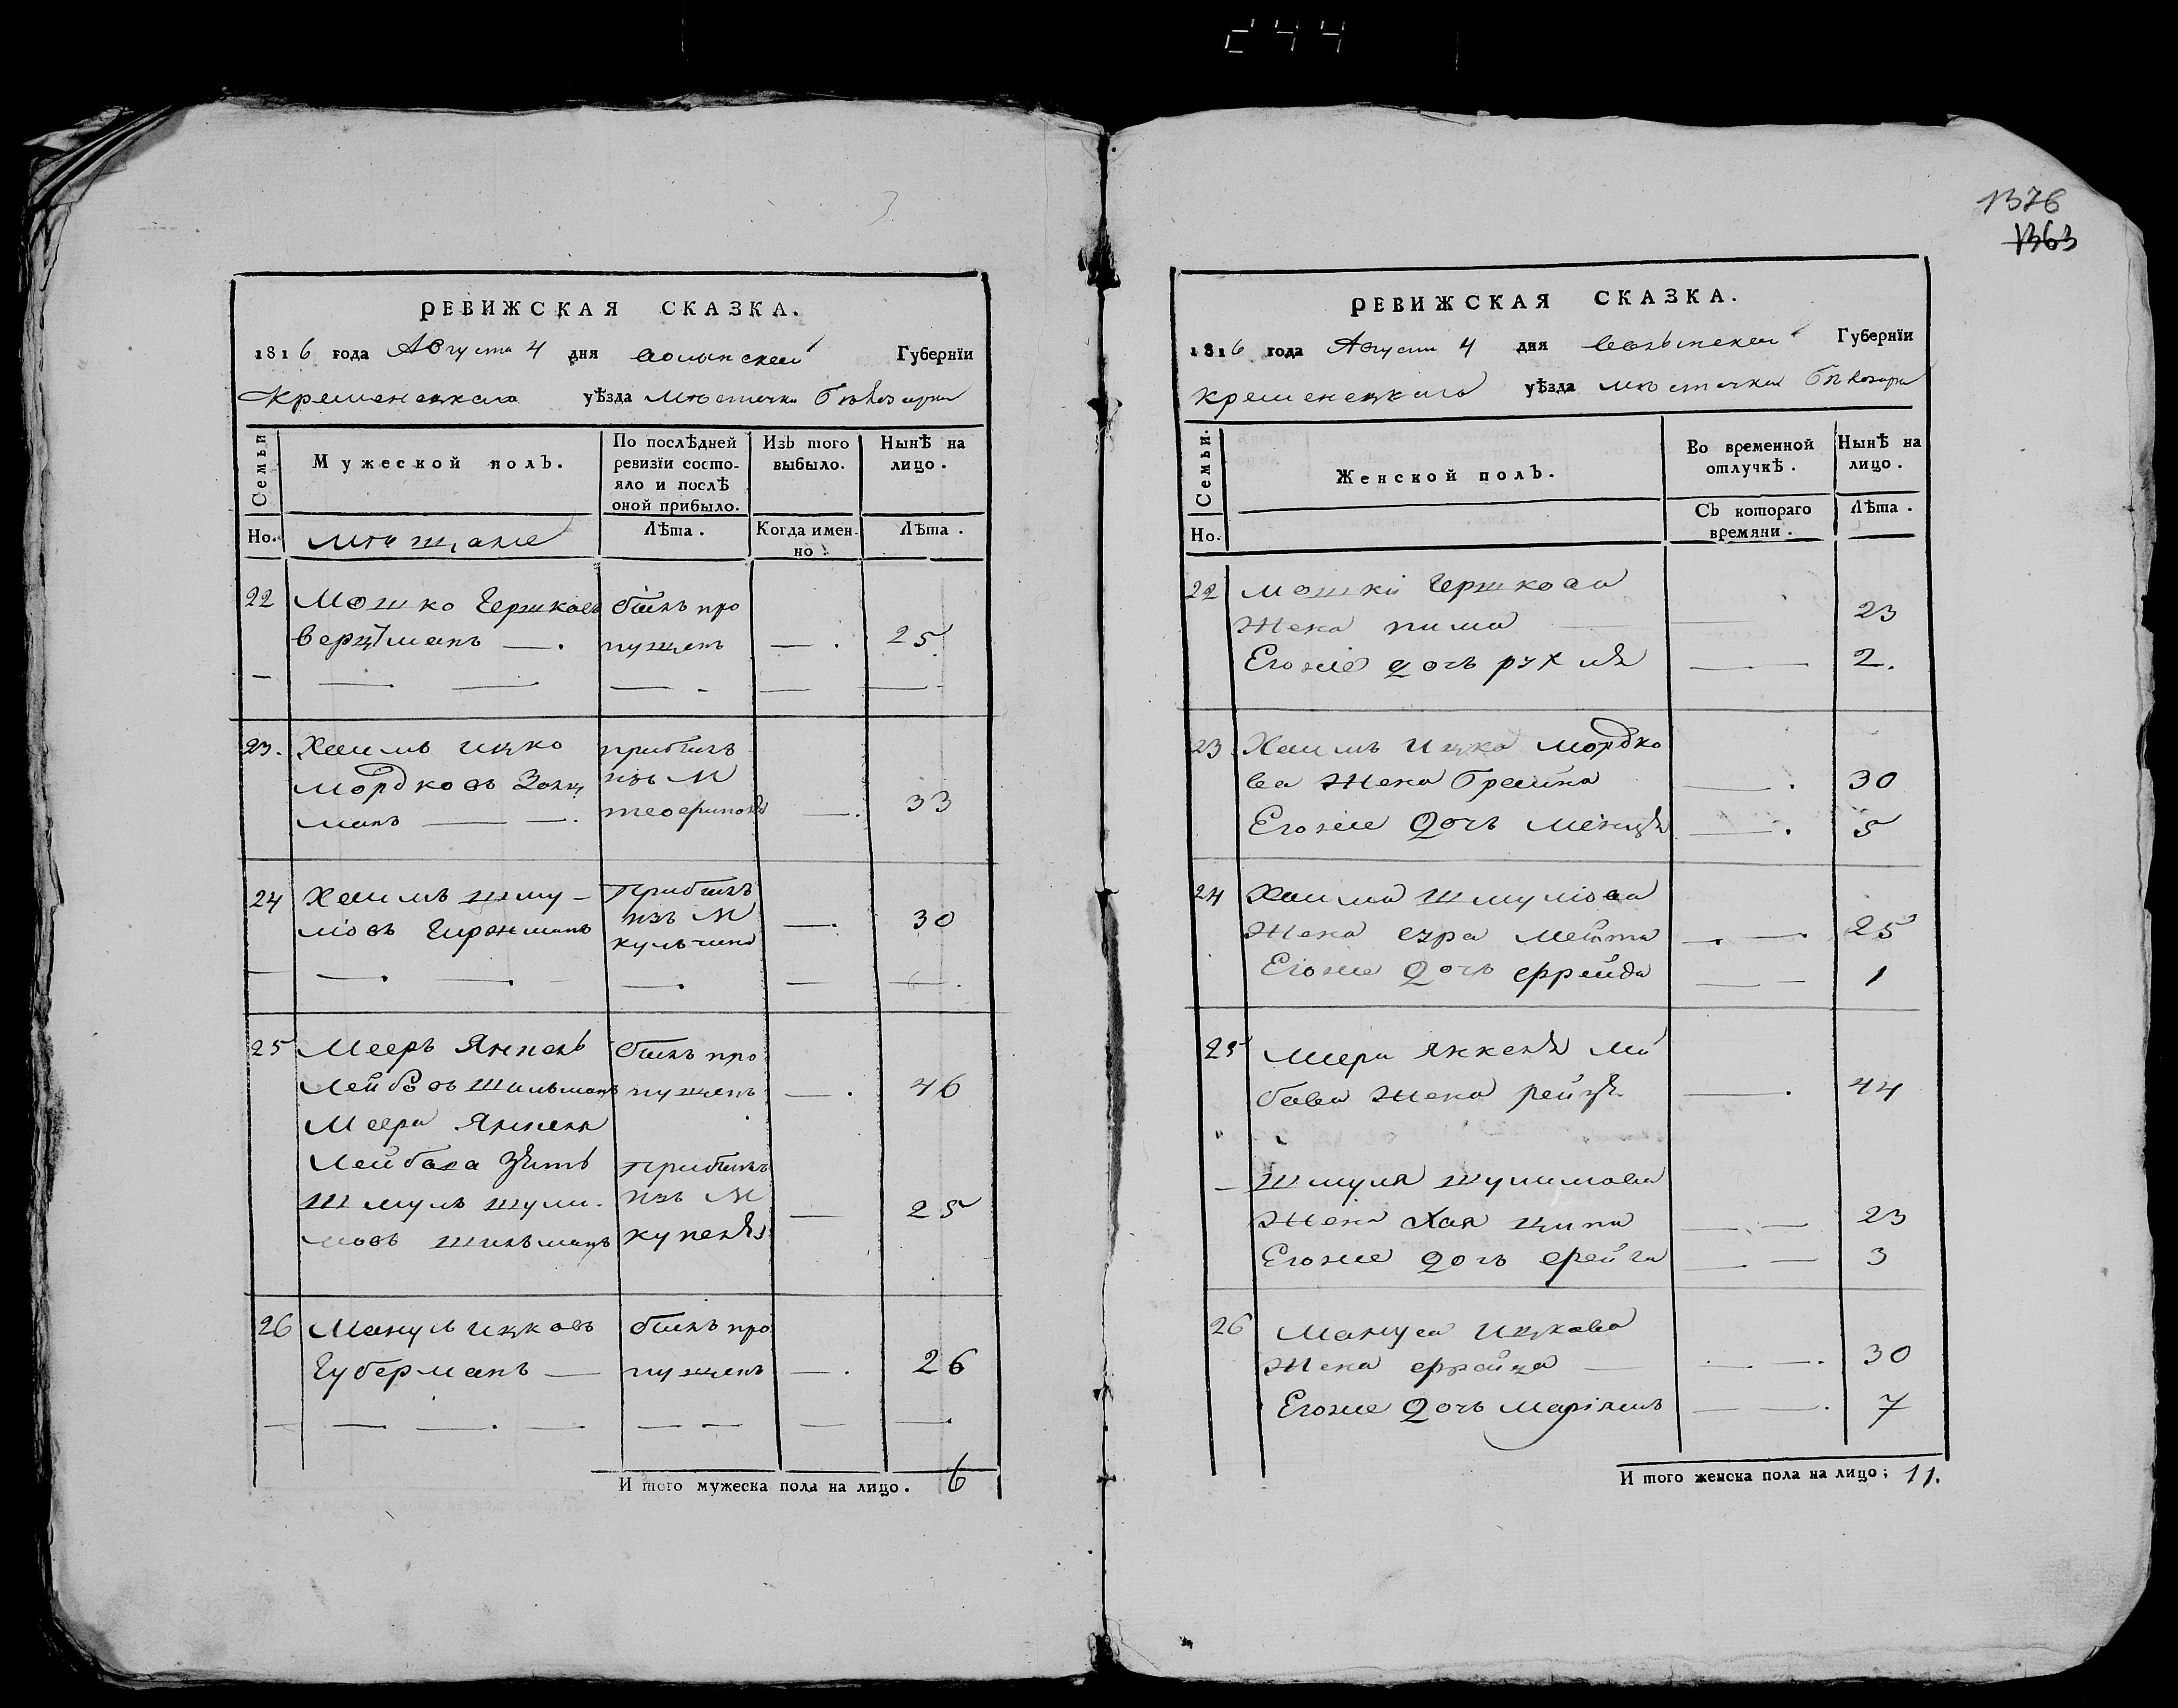 244
1376
1363
РЕВИЖСКАЯ СКАЗКА.
1816 года Августа 4 дня волынской Губернїи
Кременецкаго уѣзда местечка Бѣлозирки
Семьи
Мужеской полъ.
По послѣдней ревизїи состо-
яло и послѣ
оной прибыло.
Изъ того выбыло.
Нынѣ на лицо.
Но.
мѣщане
Лѣта.
Когда имен-
но.
Лѣта.
22 Мошко Гершковъ былъ про
верцманъ — . пущенъ — . 25.
23. Хаимъ ицко прибылъ
мордковъ Золц изъ М
манъ — — . теофиполя — . 33
24 Хаимъ шму- прибылъ
ліовъ Гиренманъ изъ М — . 30
кульчина
25 Мееръ Янкель былъ про
Лейбовъ шильманъ пущенъ — . 46
Меера Янкеля
Лейбова зять прибылъ
Шмуль шули- изъ М — 25
мовъ шильманъ купеля
26 Манусъ ицковъ былъ про
Губерманъ — пущенъ — . 26
И того мужеска пола на лицо. 6
РЕВИЖСКАЯ СКАЗКА.
1816 года Августа 4 дня волынской Губернїи
кременецкаго уѣзда местечка Бѣлозирки
Семьи.
Женской полъ.
Во временной
отлучкѣ.
Нынѣ на
лицо.
Но.
Съ котораго
времяни.
Лѣта.
22 мошки Гершкова
Жена пима — 23
Егоже дочь рухля — 2.
23 Хаимъ ицка мордко
ва Жена брайна — . 30
Егоже дочь менця — . 5
24 Хаима Шмуліова
Жена езра мейта — . 25
Егоже дочь ффейда — — 1
25 Меера янкеля лей
бова Жена рейзя — . 44
— Шмуля шулимова
Жена Хая ципа — — 23
Егоже дочь фейга — — 3
26 Мануса ицкова
Жена ффейца — — . 30
Егоже дочь маріямъ — — . 7
И того женска пола на лицо; 11.